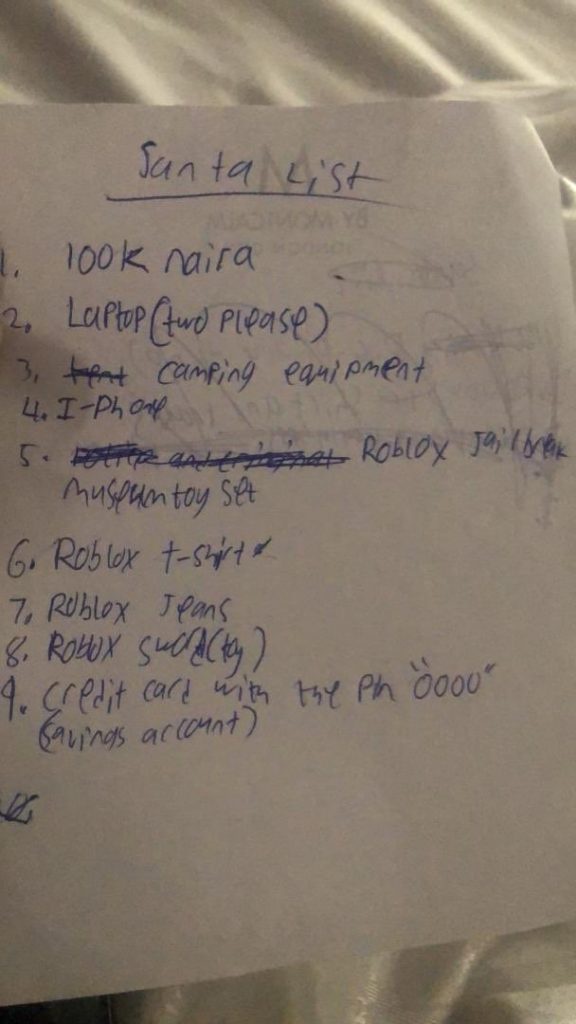 Santa List
1. 100K naira
2. Laptop (two please)
3. tent camping equipment
4. I-Phone
5. Roblox Jailbreak
museum toy set
6. Roblox t-shirt
7. Roblox Jeans
8. Roblox sword(toy)
9. credit card with the pin "0000"
(savings account)
BY MONTCALM
LONDON